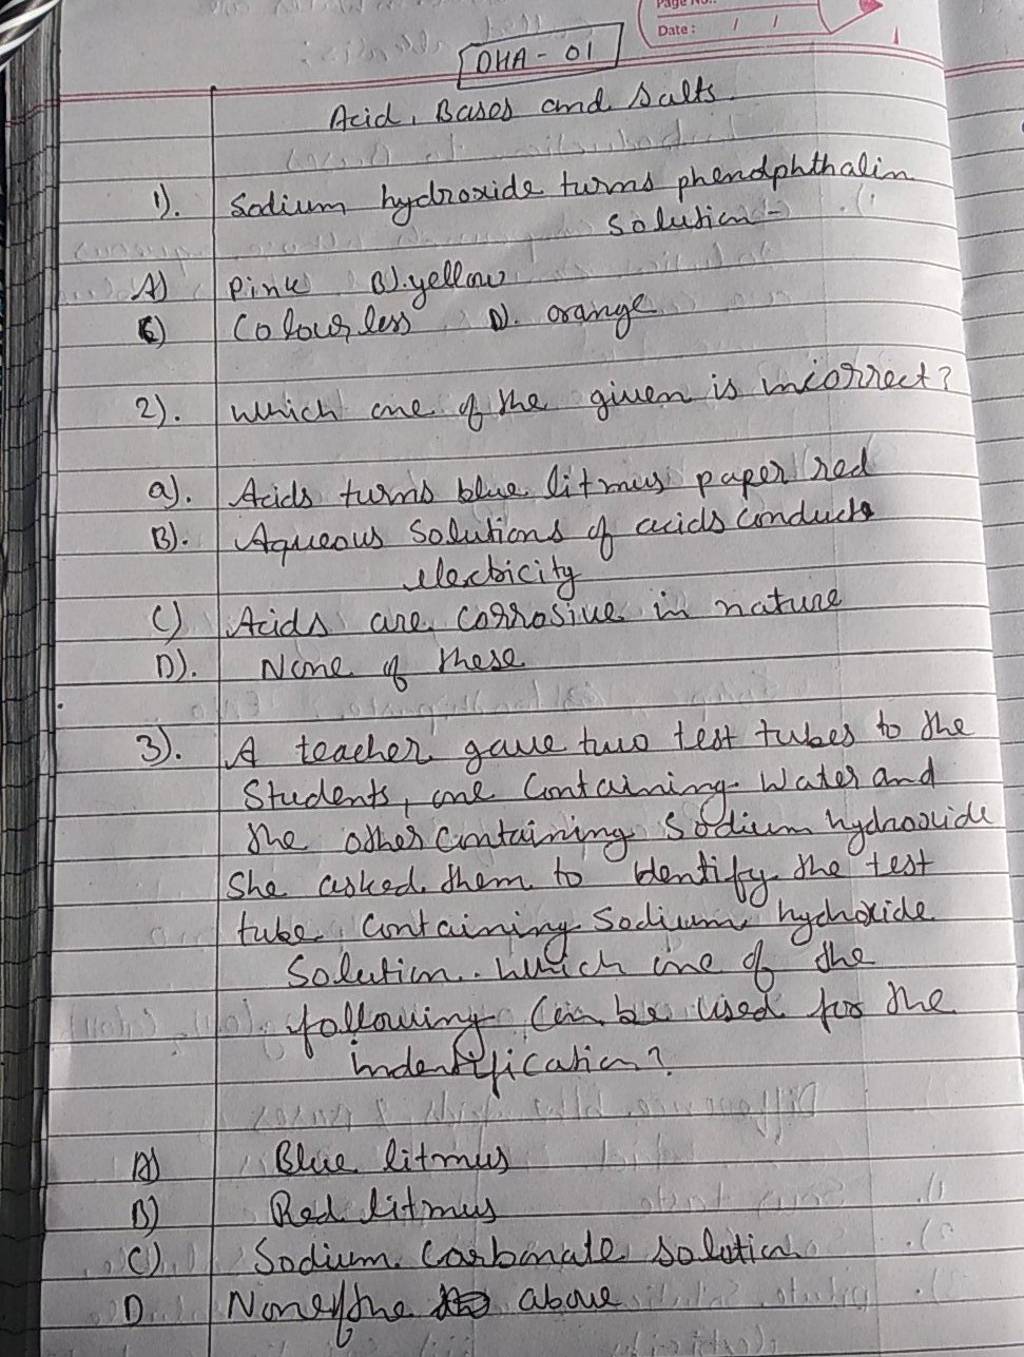 Page No.:
Date: / /
DHA - 01
Acid, Bases and Salts.
1). Sodium hydroxide turns phenolphthalin
solution -
A) Pink B). yellow
C) Colourless D). orange
2). which one of the given is incorrect?
a). Acids turns blue litmus paper red
B). Aqueous Solutions of acids conducts
electricity
C) Acids are corrosive in nature
D). None of these
3). A teacher gave two test tubes to the
Students, one Containing Water and
the other containing Sodium hydroxide
She asked them to identify the test
tube Containing Sodium hydroxide
Solution. which one of the
following Can be used for the
indentification?
A) Blue litmus
B) Red litmus
C) Sodium Carbonate solution
D None of the above